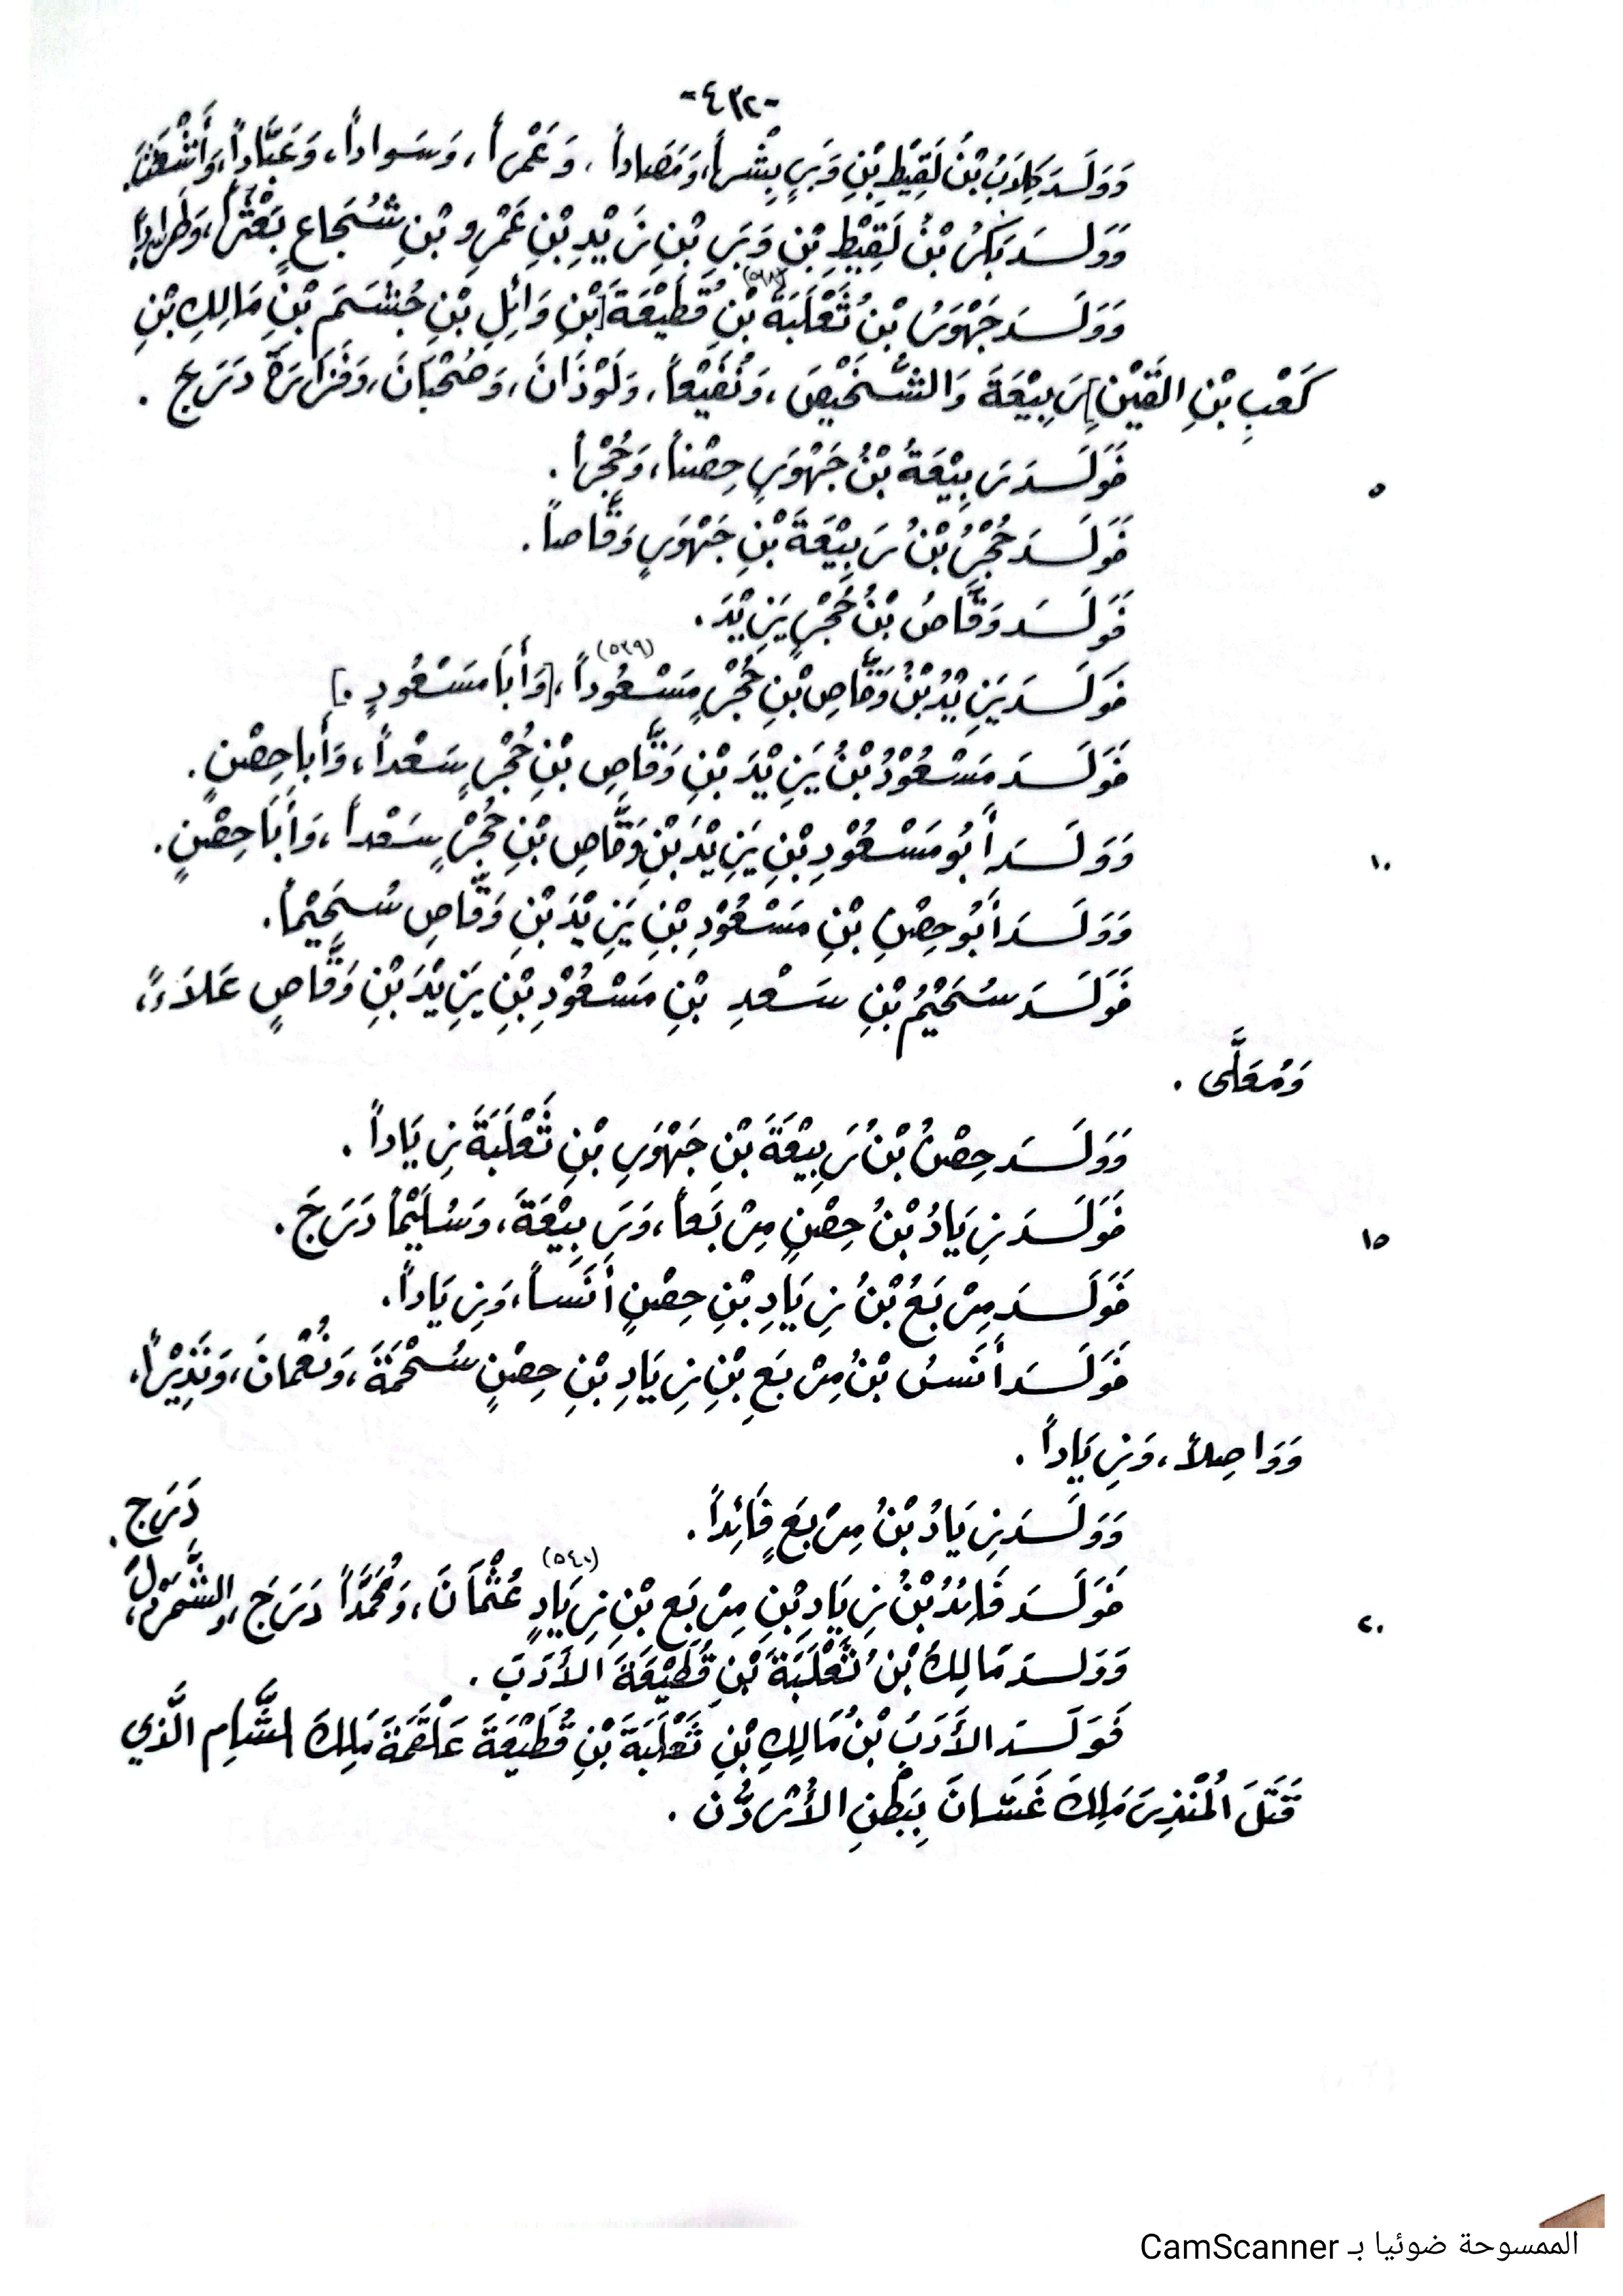 -٤٣٢-
وَوَلَـدَ كِلَابُ بْنُ لَقِيْطِ بْنِ وَبَرٍ بِشْراً، وَمَصَاداً، وَعَمْراً، وَسَواداً، وَعَبَّاداً، وَأَشْعَثَ.
وَوَلَـدَ بَكْرُ بْنُ لَقِيْطِ بْنِ وَبَرِ بْنِ زَيْدِ بْنِ عَمْرِو بْنِ شُجَاعٍ بَعْثَراً، وَطَرَّاداً.
وَوَلَـدَ جَهْوَرُ بْنُ ثَعْلَبَةَ بْنِ قُطَيْعَةَ [بْنِ وَائِلِ بْنِ جُشَمَ بْنِ مَالِكِ بْنِ
كَعْبِ بْنِ القَيْنِ] رَبِيْعَةَ وَالشَّخِيْصَ، وَنُفَيْعاً، وَلَوْذَانَ، وَصُحْبَانَ، وَفَزَارَةَ دَرَج.
فَوَلَـدَ رَبِيْعَةُ بْنُ جَهْوَرٍ حِصْناً، وَحُجْراً. ٥
فَوَلَـدَ حُجْرُ بْنُ رَبِيْعَةَ بْنِ جَهْوَرٍ وَقَّاصاً.
فَوَلَـدَ وَقَّاصُ بْنُ حُجْرٍ يَزِيْدَ.
فَوَلَـدَ يَزِيْدُ بْنُ وَقَّاصِ بْنِ حُجْرٍ مَسْعُوداً (٥٣٩)، [وَأَبَا مَسْعُودٍ.]
فَوَلَـدَ مَسْعُوْدُ بْنُ يَزِيْدَ بْنِ وَقَّاصِ بْنِ حُجْرٍ سَعْداً، وَأَبا حِصْنٍ.
وَوَلَـدَ أَبُو مَسْعُوْدِ بْنِ يَزِيْدَ بْنِ وَقَّاصِ بْنِ حُجْرٍ سَعْداً، وَأَبَا حِصْنٍ. ١٠
وَوَلَـدَ أَبُو حِصْنِ بْنِ مَسْعُوْدِ بْنِ يَزِيْدَ بْنِ وَقَّاصِ سُحَيْماً.
فَوَلَـدَ سُحَيْمُ بْنِ سَعْدِ بْنِ مَسْعُوْدِ بْنِ يَزِيْدَ بْنِ وَقَّاصٍ عَلَاءً،
وَمُعَلَّى.
وَوَلَـدَ حِصْنُ بْنُ رَبِيْعَةَ بْنِ جَهْوَرِ بْنِ ثَعْلَبَةَ زِيَاداً.
فَوَلَـدَ زِيَادُ بْنُ حِصْنٍ مِرْبَعاً، وَرَبِيْعَةَ، وَسُلَيْماً دَرَجَ. ١٥
فَوَلَـدَ مِرْبَعُ بْنُ زِيَادِ بْنِ حِصْنٍ أَنَساً، وَزِيَاداً.
فَوَلَـدَ أَنَسُ بْنُ مِرْبَعِ بْنِ زِيَادِ بْنِ حِصْنٍ سُحْمَةَ، وَنُعْمانَ، وَنَذِيْراً،
وَوَاصِلاً، وَزِيَاداً.
وَوَلَـدَ زِيَادُ بْنُ مِرْبَعٍ فَائِداً.
فَوَلَـدَ فَائِدُ بْنُ زِيَادِ بْنِ مِرْبَعِ بْنِ زِيَادٍ (٥٤٠) عُثْمَانَ، وَمُحَمَّداً دَرَجَ، والشَّمَرْدَلَ، دَرَج. ٢٠
وَوَلَـدَ مَالِكُ بْنُ ثَعْلَبَةَ بْنِ قُطَيْعَةَ الأَدَبَ.
فَوَلَـدَ الأَدَبُ بْنُ مَالِكِ بْنِ ثَعْلَبَةَ بْنِ قُطَيْعَةَ عَلْقَمَةَ مَلِكَ الشَّامِ الَّذِي
قَتَلَ الْمُنْذِرَ مَلِكَ غَسَّانَ بِبَطْنِ الأُرْدُنِّ.
الممسوحة ضوئيا بـ CamScanner